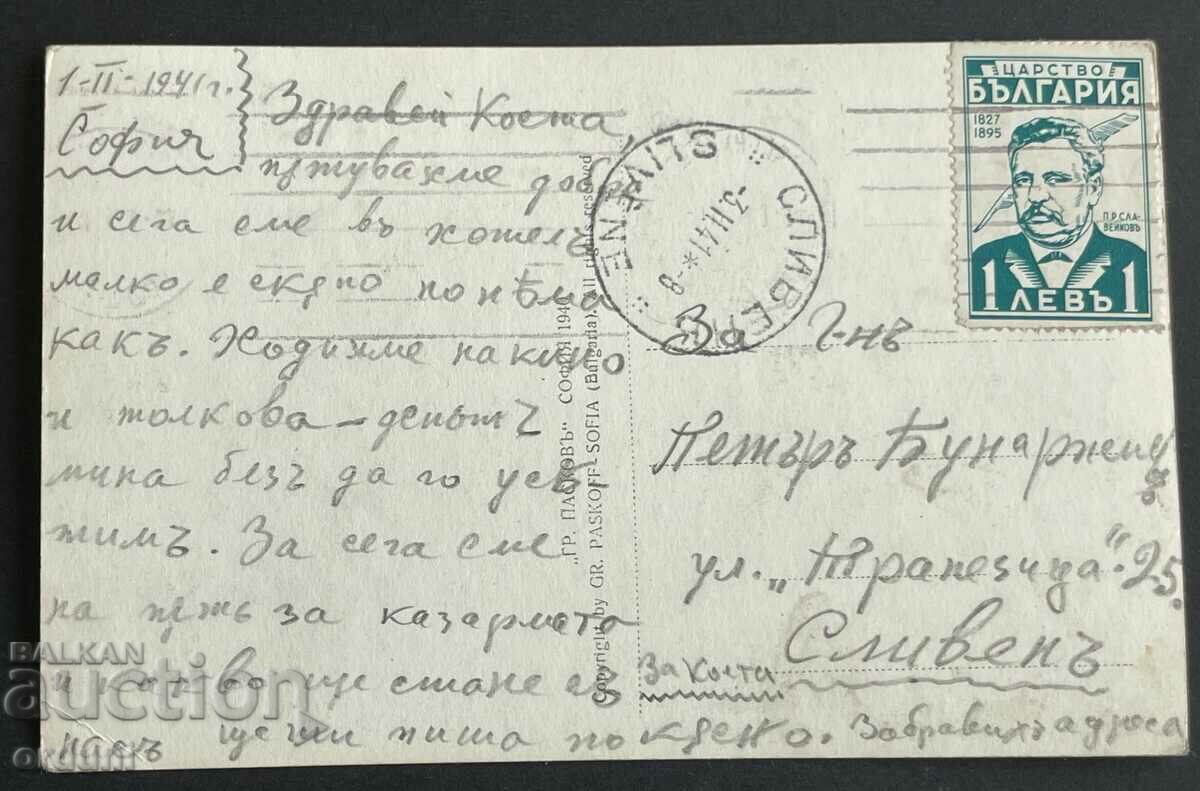 1-II-1941 г.
София
Здравей Коста,
пѫтувахме добрѣ
и сега сме въ хотелъ
малко е скѫпо но нѣма
какъ. Ходихме на кино
и толкова – деньтъ
мина безъ да го усѣ
тимъ. За сега сме
на пѫть за казармата
и какво ще стане съ
насъ ще ти пиша по кѫсно. Забравихъ адреса
За Коста
"ГР. ПАСКОВЪ" СОФИЯ 194
Copyright by GR. PASKOFF-SOFIA (Bulgaria). All rights reserved
SLIVENE
СЛИВЕН
-3.II.41*-8
ЦАРСТВО
БЪЛГАРИЯ
1827
1895
П.Р.СЛА-
ВЕЙКОВЪ
1 ЛЕВЪ 1
За Г-нъ
Петъръ Бунаржиц
ул. „Трапезица" 25.
Сливенъ
BALKAN
auction